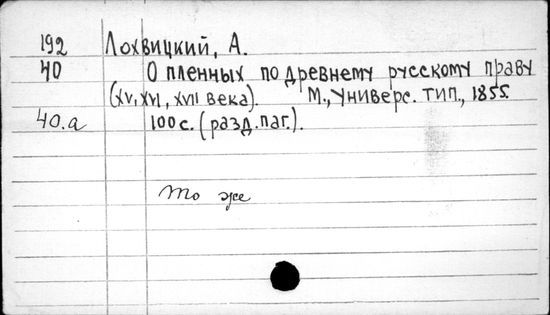 192 Лохвицкий, А.
40 О пленных по древнему русскому праву
(XV, XVI, XVII века). М., Универс. тип., 1855.
40.а 100 с. (разд. паг.).
То же